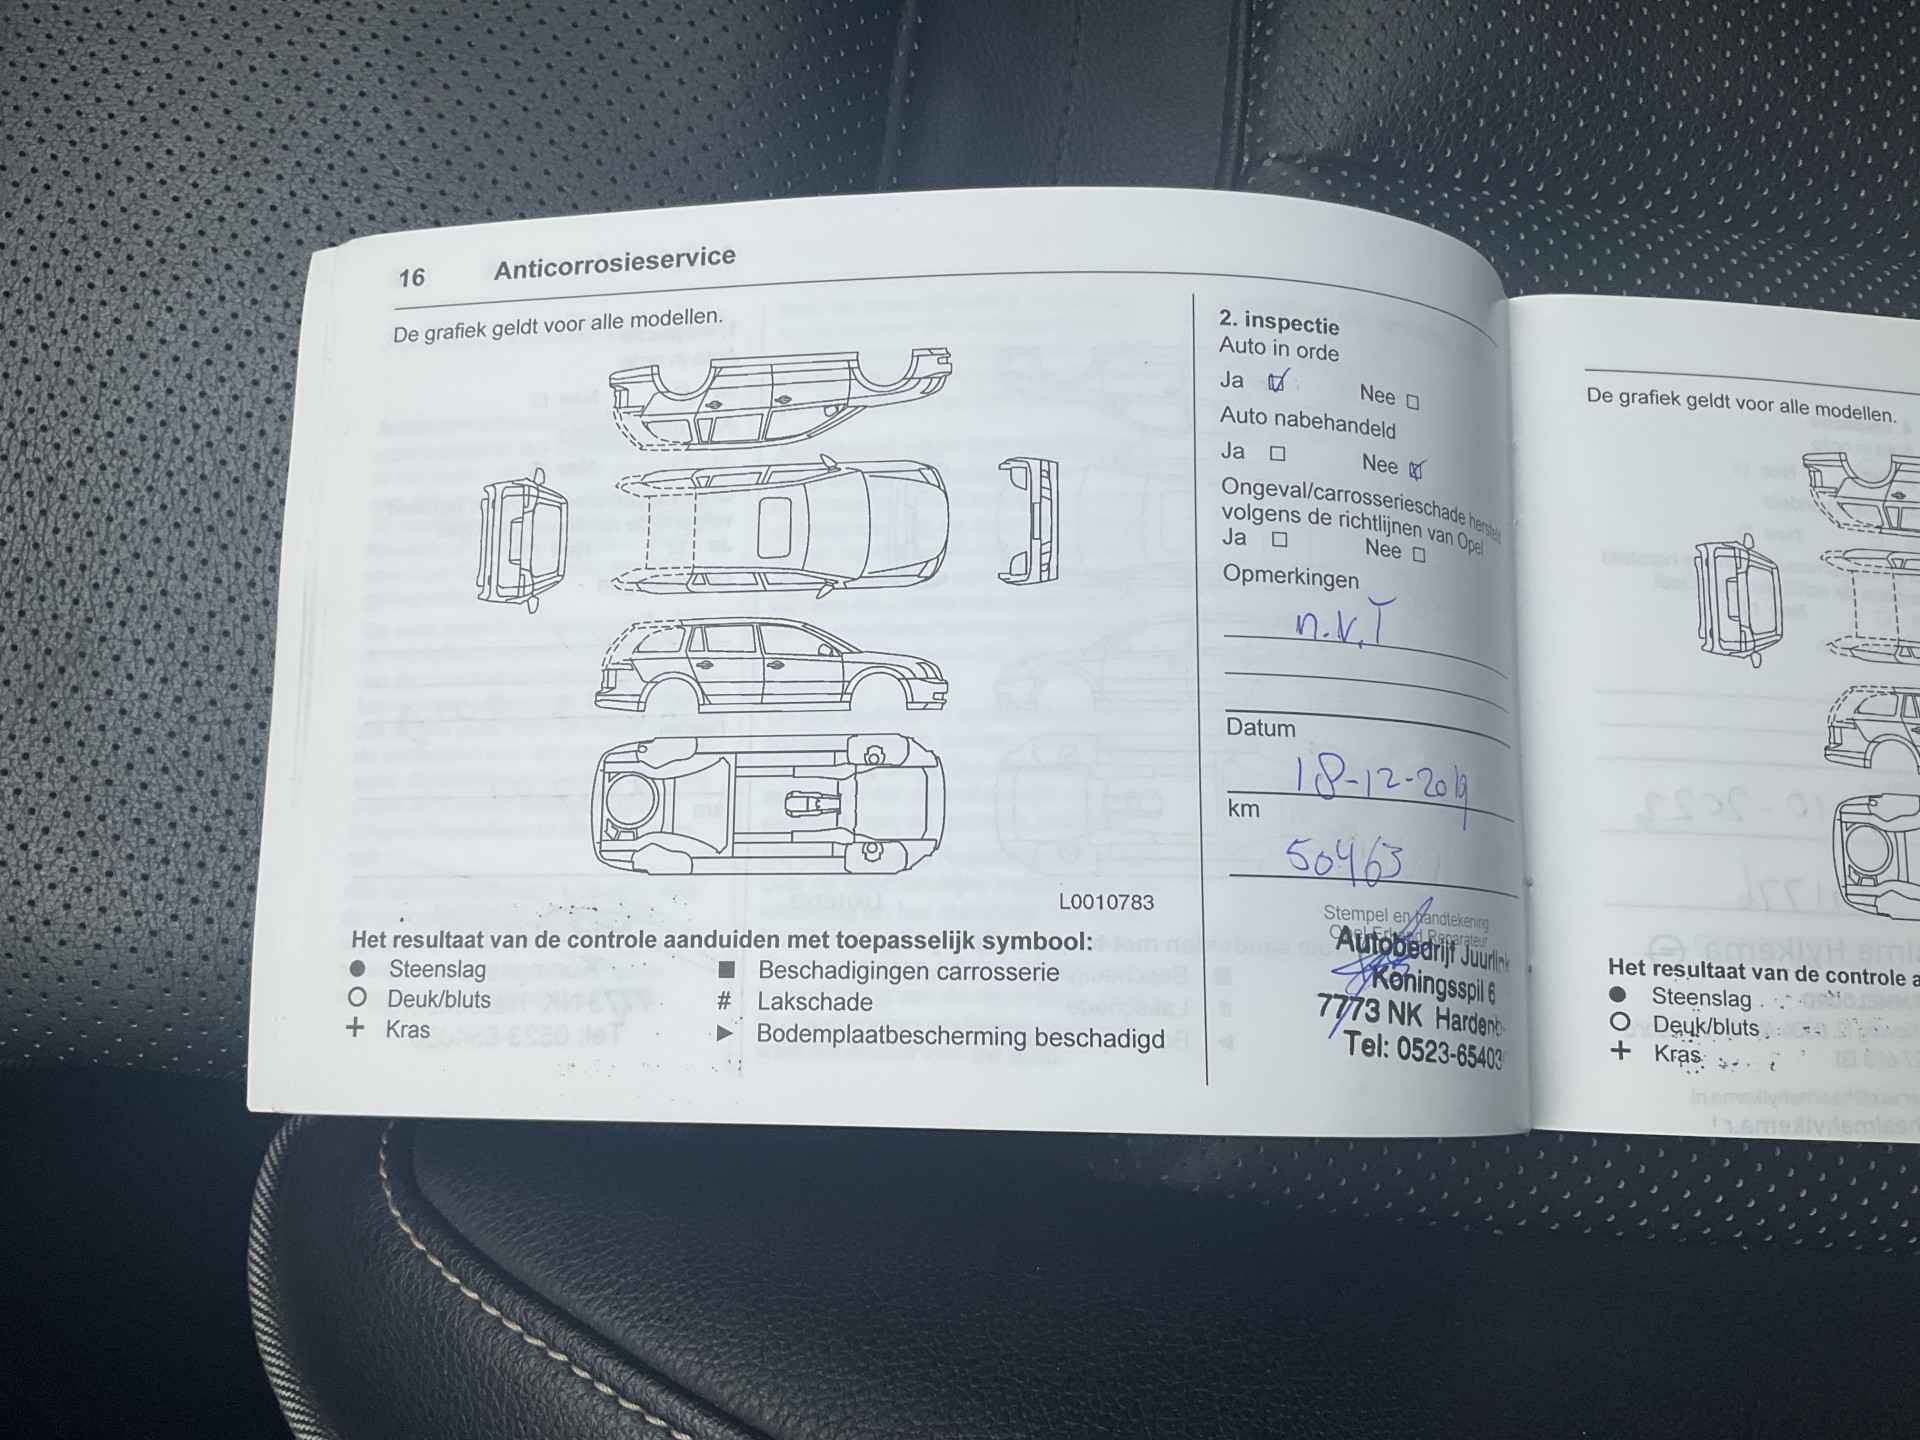 16 Anticorrosieservice
De grafiek geldt voor alle modellen.
L0010783
Het resultaat van de controle aanduiden met toepasselijk symbool:
● Steenslag
○ Deuk/bluts
+ Kras
■ Beschadigingen carrosserie
# Lakschade
► Bodemplaatbescherming beschadigd
2. inspectie
Auto in orde
Ja Nee
Auto nabehandeld
Ja Nee
Ongeval/carrosserieschade hersteld
volgens de richtlijnen van Opel
Ja Nee
Opmerkingen
n.v.T
Datum
18-12-2019
km
50463
Stempel en handtekening
Opel Erkend Reparateur
Autobedrijf Juurlink
Koningsspil 6
7773 NK Hardenb
Tel: 0523-65403
De grafiek geldt voor alle modellen.
Het resultaat van de controle a
● Steenslag
○ Deuk/bluts
+ Kras